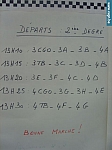 DÉPARTS 2ème DEGRÉ
- 13H10 - 3CGO - 3A - 3B - 4A
- 13H15 - 3TB - 3C - 3D - 4B
- 13H20 - 3E - 3F - 4C - 4D
- 13H25 - 4CGO - 3G - 3H - 4E
- 13H30 - 4TB - 4F - 4G
BONNE MARCHE!